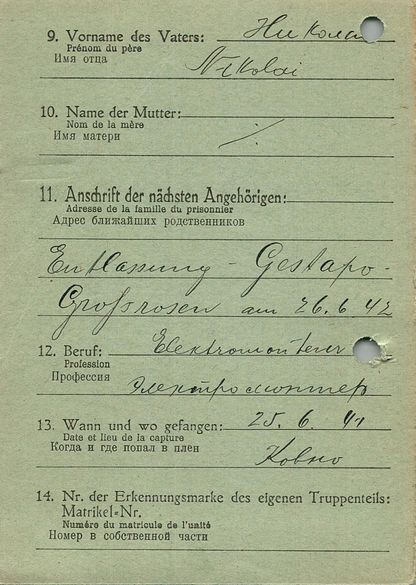 9. Vorname des Vaters: Николай
Prénom du père
Имя отца
Nikolai
10. Name der Mutter:
Nom de la mère
Имя матери
11. Anschrift der nächsten Angehörigen:
Adresse de la famille du prisonnier
Адрес ближайших родственников
Entlassung - Gestapo -
Großrosen am 26.6.42
12. Beruf: Elektromonteur
Profession
Профессия
Электромонтер
13. Wann und wo gefangen: 25. 6. 41
Date et lieu de la capture
Когда и где попал в плен
Ковно
14. Nr. der Erkennungsmarke des eigenen Truppenteils:
Matrikel=Nr.
Numéro du matricule de l'unité
Номер в собственной части